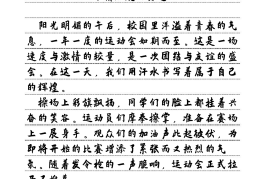 阳光明媚的午后，校园里洋溢着青春的气
息，一年一度的运动会如期而至。这是一场
速度与激情的较量，是一次团结与友谊的盛
会。在这一天，我们用汗水书写着属于自己
的辉煌。
操场上彩旗飘扬，同学们的脸上都挂着兴
奋的笑容。运动员们摩拳擦掌，准备在赛场
上一展身手。观众们的加油声此起彼伏，为
即将开始的比赛增添了紧张而又热烈的气
氛。随着发令枪的一声脆响，运动会正式拉